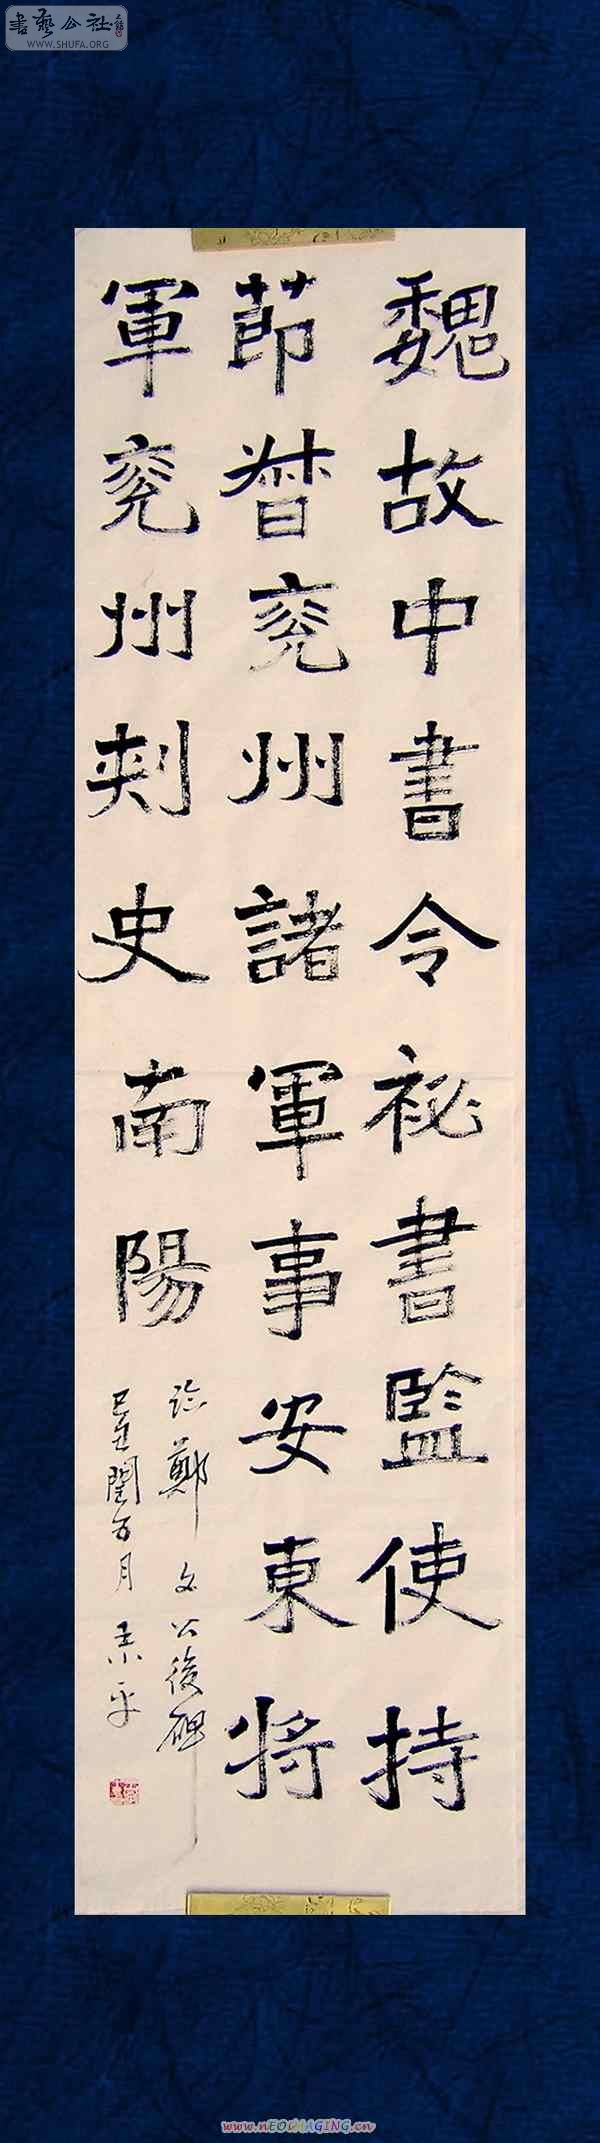 書藝公社
WWW.SHUFA.ORG
魏故中書令祕書監使持
節督兖州諸軍事安東將
軍兖州刺史南陽
臨鄭文公後碑
己丑閏五月
www.nEOIMAGING.cn